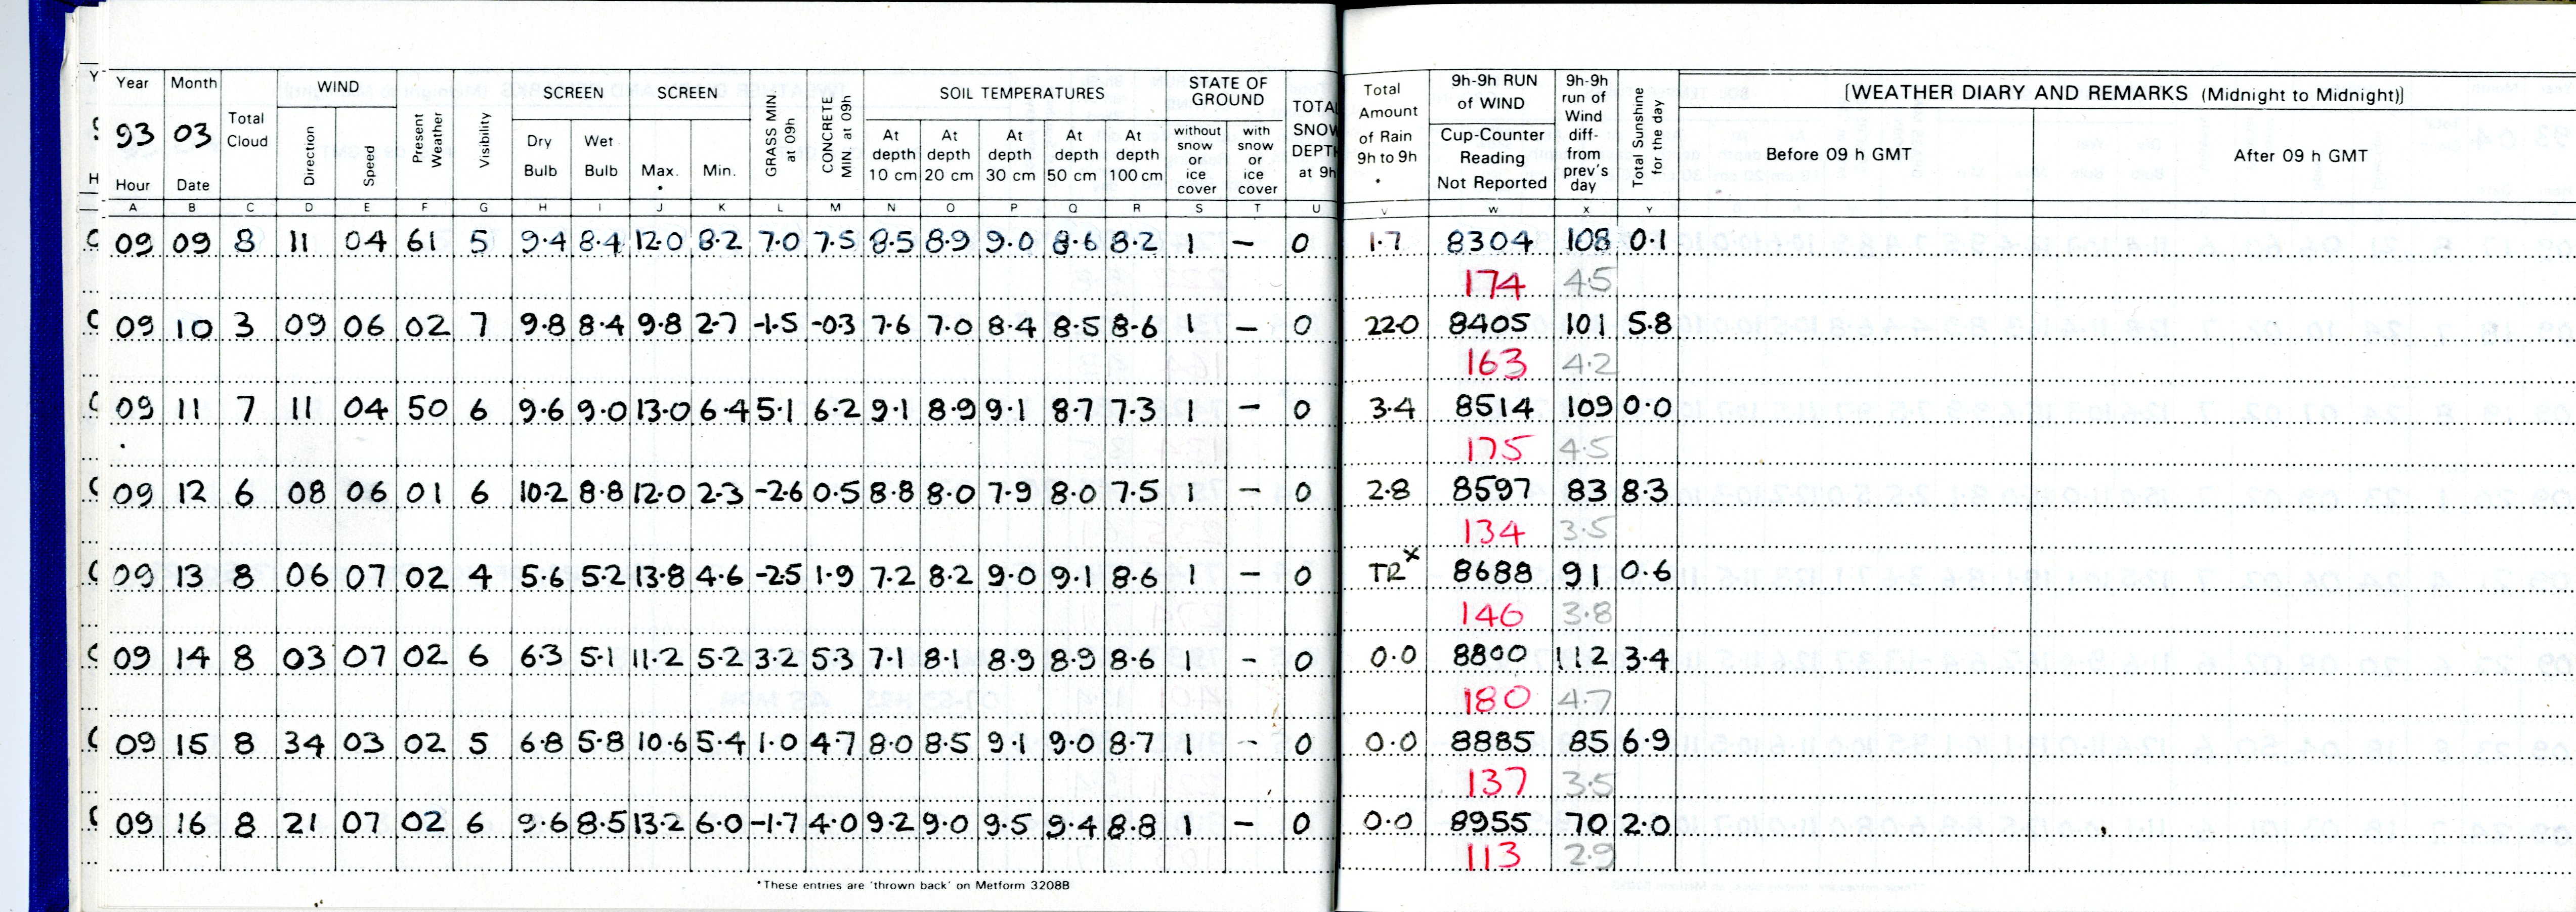 Year Month Total Cloud WIND Present Weather Visibility SCREEN SCREEN GRASS MIN. at 09h CONCRETE MIN at 09h SOIL TEMPERATURES STATE OF GROUND TOTAL SNOW DEPTH at 9h Total Amount of Rain 9h to 9h • 9h-9h RUN of WIND 9h-9h run of Wind diff- from prev's day Total Sunshine for the day [WEATHER DIARY AND REMARKS (Midnight to Midnight)]
93 03 Direction Speed Dry Bulb Wet Bulb Max. • Min. At depth 10 cm At depth 20 cm At depth 30 cm At depth 50 cm At depth 100 cm without snow or ice cover with snow or ice cover Cup-Counter Reading Not Reported Before 09 h GMT After 09 h GMT
Hour Date
A B C D E F G H I J K L M N O P Q R S T U V W X Y
09 09 8 11 04 61 5 9.4 8.4 12.0 8.2 7.0 7.5 8.5 8.9 9.0 8.6 8.2 1 – 0 1.7 8304 108 0.1
174 4.5
09 10 3 09 06 02 7 9.8 8.4 9.8 2.7 -1.5 -0.3 7.6 7.0 8.4 8.5 8.6 1 – 0 22.0 8405 101 5.8
163 4.2
09 11 7 11 04 50 6 9.6 9.0 13.0 6.4 5.1 6.2 9.1 8.9 9.1 8.7 7.3 1 – 0 3.4 8514 109 0.0
175 4.5
09 12 6 08 06 01 6 10.2 8.8 12.0 2.3 -2.6 0.5 8.8 8.0 7.9 8.0 7.5 1 – 0 2.8 8597 83 8.3
134 3.5
09 13 8 06 07 02 4 5.6 5.2 13.8 4.6 -2.5 1.9 7.2 8.2 9.0 9.1 8.6 1 – 0 TR x 8688 91 0.6
146 3.8
09 14 8 03 07 02 6 6.3 5.1 11.2 5.2 3.2 5.3 7.1 8.1 8.9 8.9 8.6 1 – 0 0.0 8800 112 3.4
180 4.7
09 15 8 34 03 02 5 6.8 5.8 10.6 5.4 1.0 4.7 8.0 8.5 9.1 9.0 8.7 1 – 0 0.0 8885 85 6.9
137 3.5
09 16 8 21 07 02 6 9.6 8.5 13.2 6.0 -1.7 4.0 9.2 9.0 9.5 9.4 8.8 1 – 0 0.0 8955 70 2.0
113 2.9
*These entries are 'thrown back' on Metform 3208B